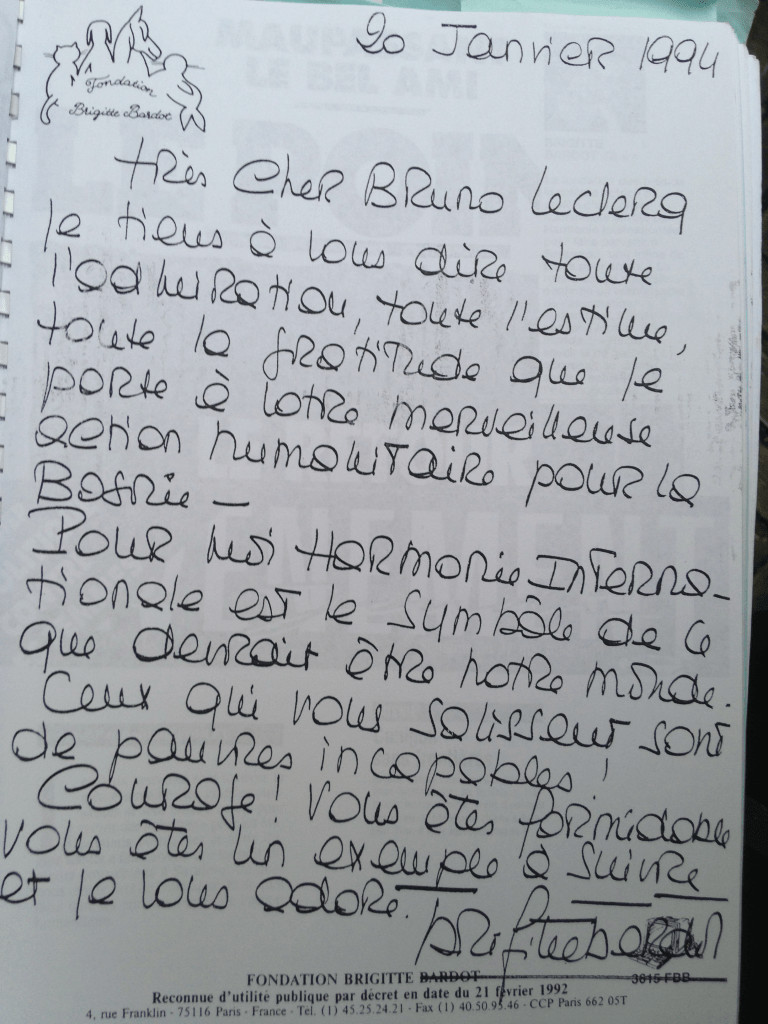 20 Janvier 1994
Fondation
Brigitte Bardot
très Cher Bruno Leclerq
je tiens à vous dire toute
l'admiration, toute l'estime,
toute la gratitude que je
porte à votre merveilleuse
action humanitaire pour la
Bosnie —
Pour moi Harmonie Interna-
tionale est le symbôle de ce
que devrait être notre monde.
Ceux qui vous salissent sont
de pauvres incapables!
Courage! Vous êtes formidable
vous êtes un exemple à suivre
et je vous adore.
Brigitte Bardot
FONDATION BRIGITTE BARDOT 3615 FBB
Reconnue d'utilité publique par décret en date du 21 février 1992
4, rue Franklin - 75116 Paris - France - Tél. (1) 45.25.24.21 - Fax (1) 40.50.95.46 - CCP Paris 662 05T